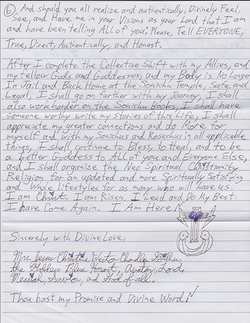 ⑥ And should you all realize and authentically, Divinely Feel,
See, and Have me in your Visions as your Lord that I am
and have been telling ALL of you: Please, Tell EVERYONE,
True, Direct, Authentically, and Honest.
After I complete the Collective Shift with my Allies, and
my fellow Gods and Goddesses, and my Body is No Longer
in Jail and Back Home at the Sonichu Temple, Safe and
Legal, I shall go on further with my Journey. I shall
also work harder on the Sonichu Books, I shall have
someone worthy write my Stories of this Life, I shall
appreciate my greater connections and do More for
myself and with my Sonichus and Rosechus in all applicable
things, I shall continue to Bless, to heal, and to be
a better Goddess to ALL of you and Everyone Else,
and I shall organize the Neo Spiritual Christianity
Religion for an updated and more Spiritually Satisfying
and Whole lifestyles for as many who will have us.
I am Christ. I am Risen. I Lead and Do My Best.
I have Come Again. I Am Here!
Sincerely with Divine Love,
Mrs. Jesus Christine Sonichu Prime,
the Goddess Blue Heart, Lord,
Messiah, Savior, and God of all.
Thou hast my Promise and Divine Word!